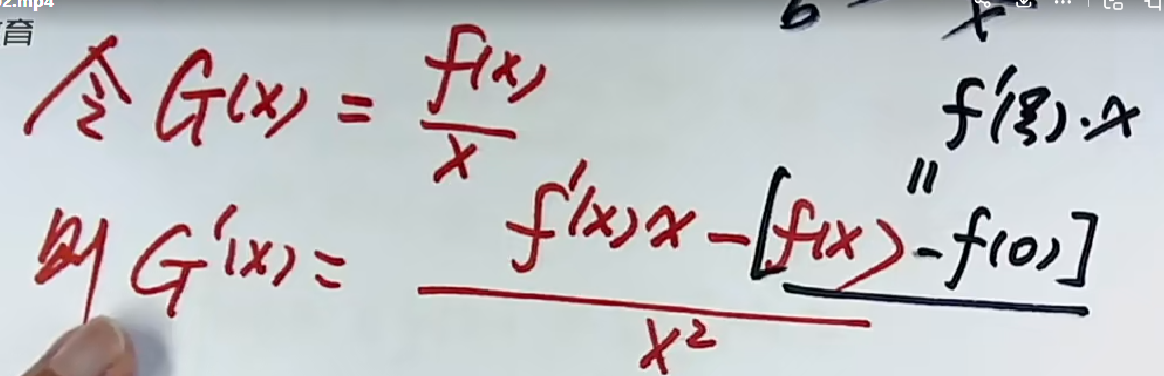 02.mp4
育
令 G(x) = f(x)/x
f'(ξ)·x
"
则 G'(x) = f'(x)x - [f(x) - f(0)]
x²